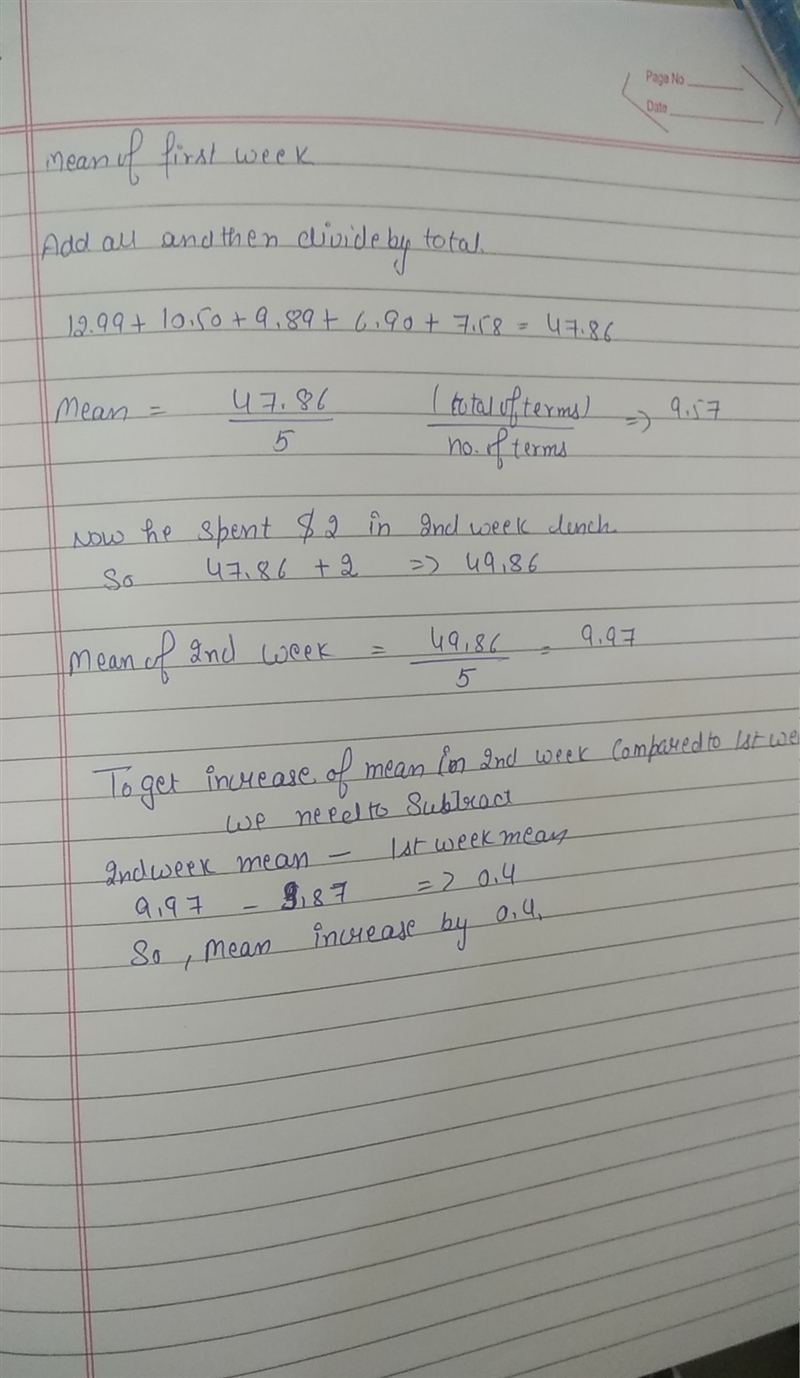 Page No
Date
Mean of first week
Add all and then divide by total.
12.99 + 10.50 + 9.89 + 6.90 + 7.58 = 47.86
Mean = 47.86 / 5 (total of terms) / no. of terms => 9.57
Now he spent $2 in 2nd week lunch.
So 47.86 + 2 => 49.86
Mean of 2nd week = 49.86 / 5 = 9.97
To get increase of mean in 2nd week Compared to 1st we
we need to Subtract
2nd week mean - 1st week mean
9.97 - 9.87 => 0.4
So, mean increase by 0.4.